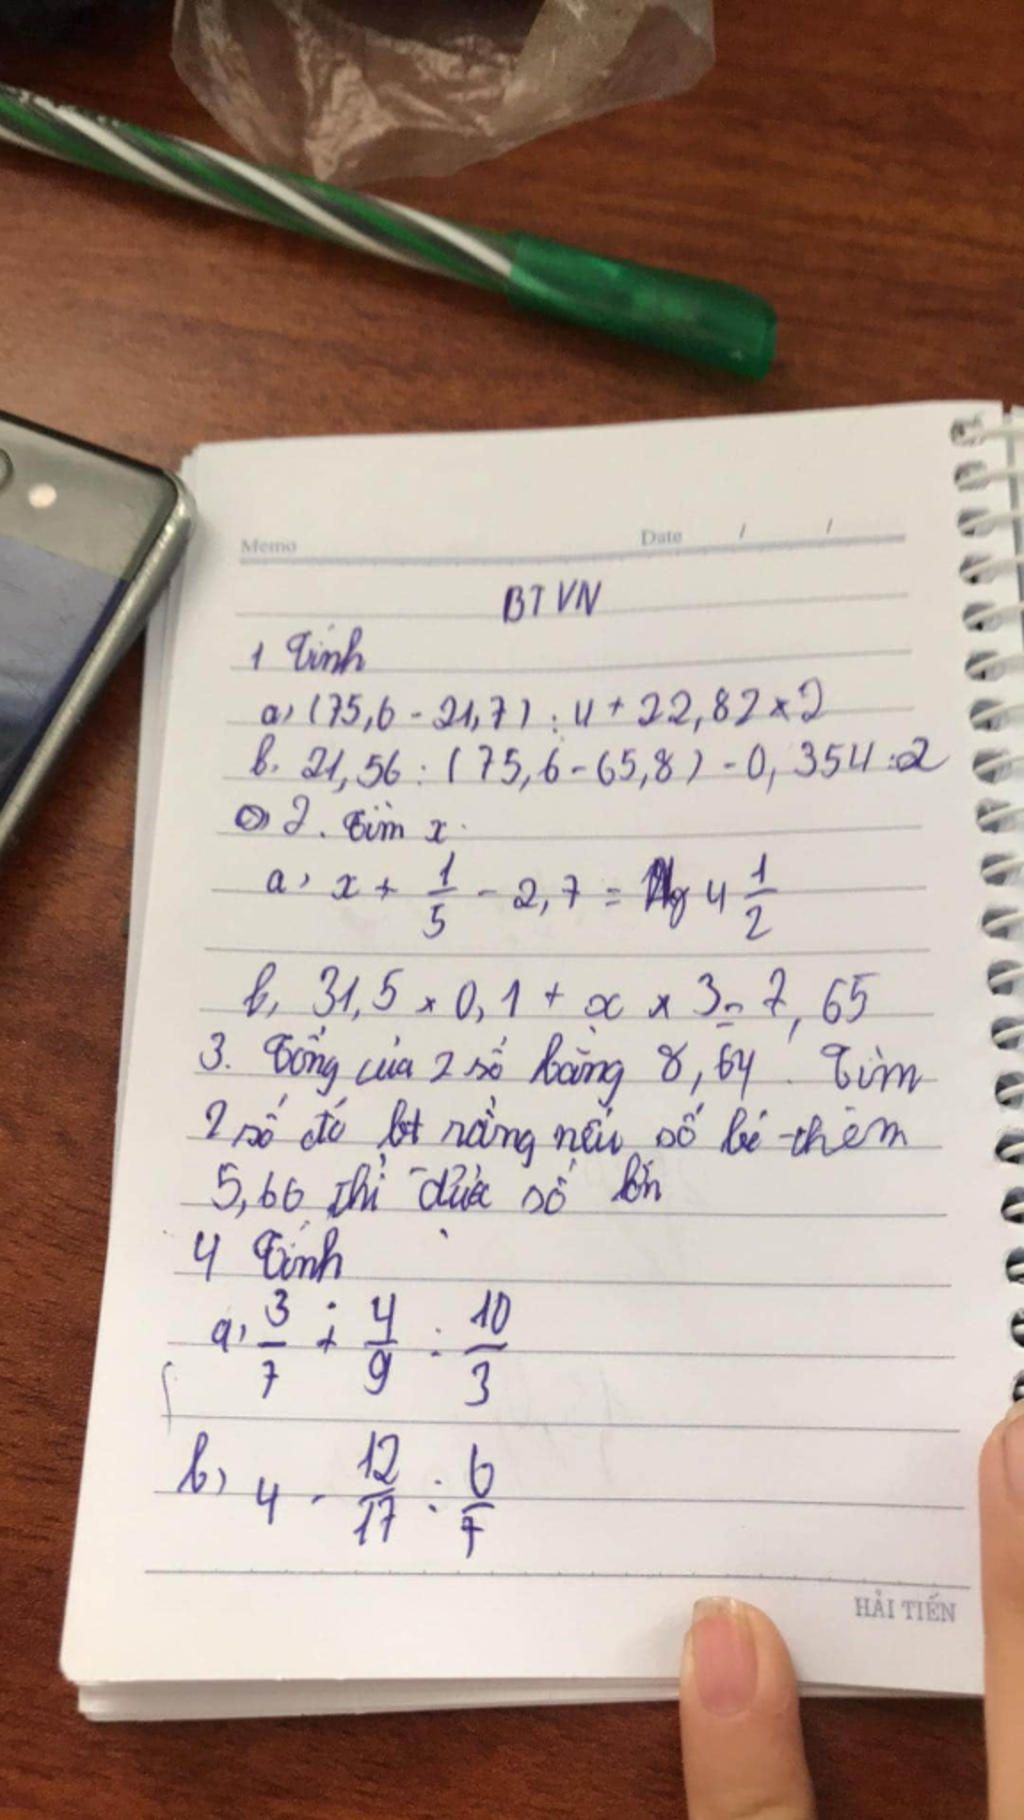 Memo Date / /
BTVN
1 Tính
a, (75,6 - 21,7) : 4 + 22,82 x 2
b. 21,56 : (75,6 - 65,8) - 0,354 : 2
2. Tìm x.
a, x + 1/5 - 2,7 = 4 1/2
b, 31,5 x 0,1 + x x 3 = 7,65
3. Tổng của 2 số bằng 8,64. Tìm
2 số đó bt rằng nếu số bé thêm
5,66 thì được số lớn
4 Tính
a, 3/7 + 4/9 : 10/3
b, 4 - 12/17 : 6/7
HẢI TIẾN